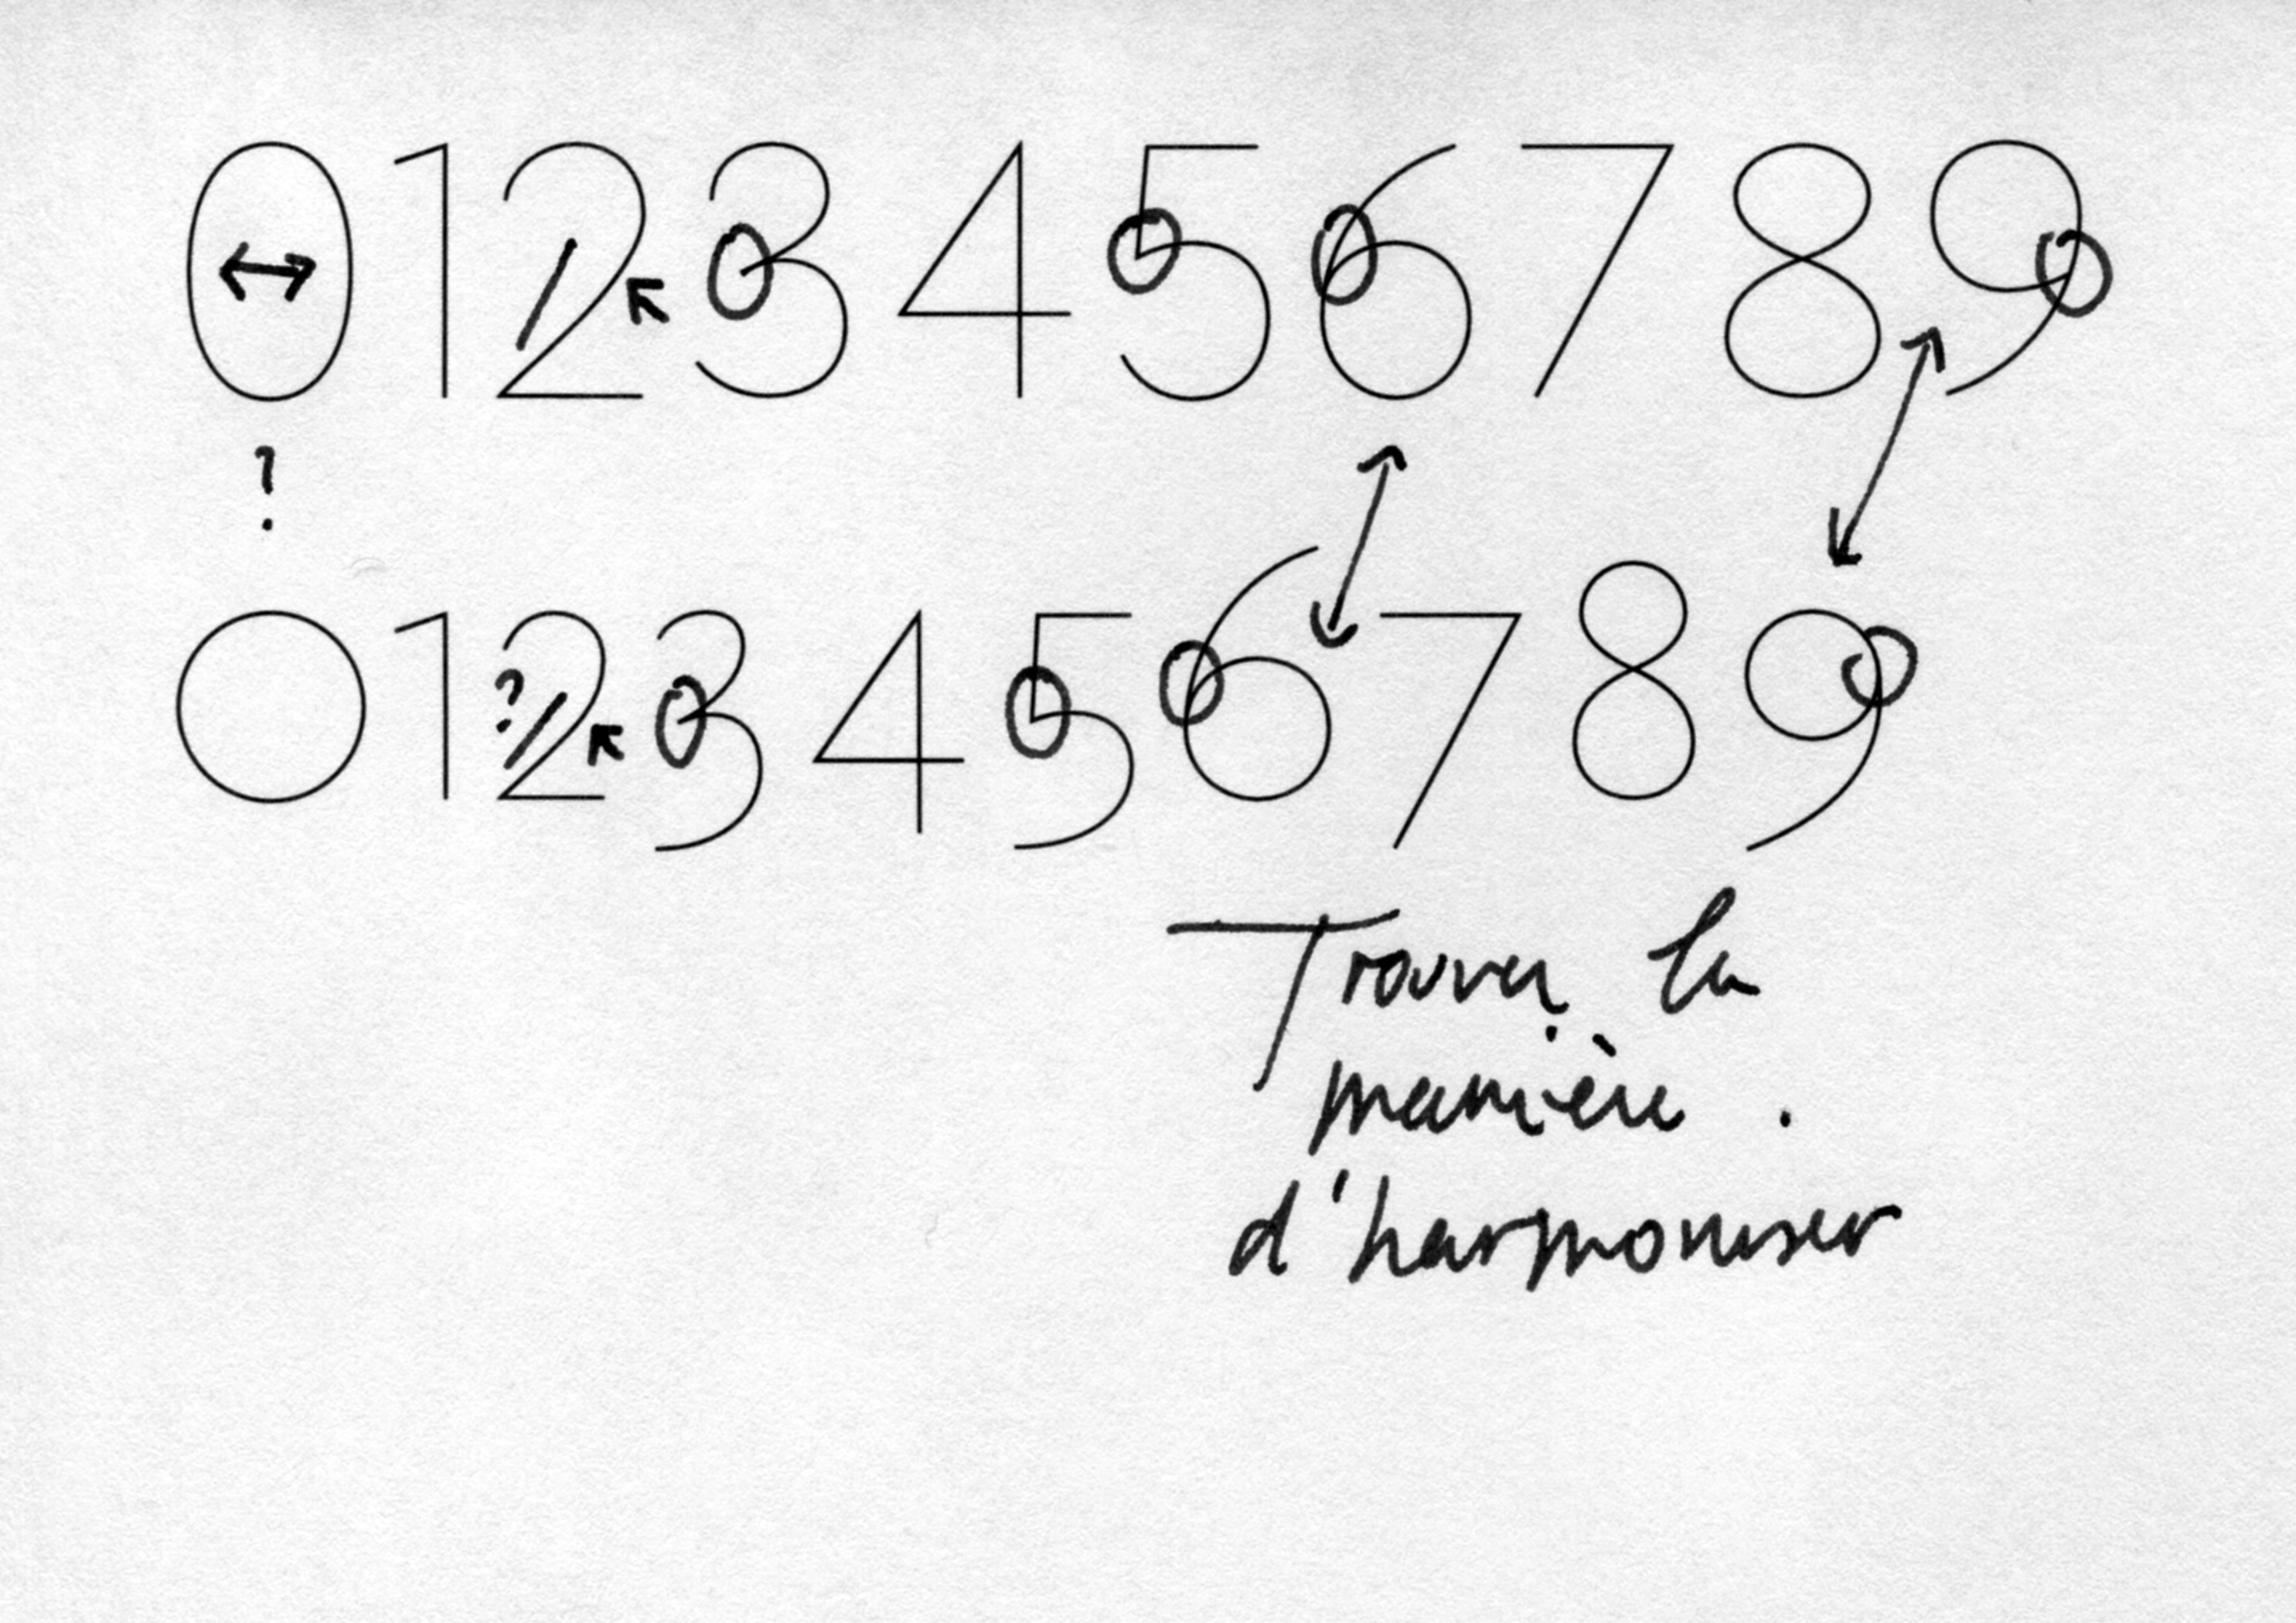 0123456789
?
0123456789
?
Trouver la
manière
d'harmoniser